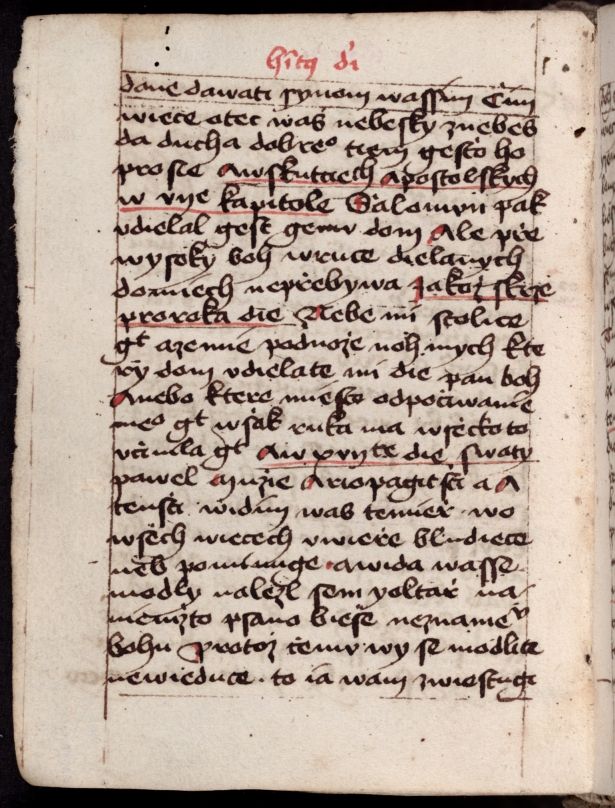 dane dawati synom wassim Cim
wiece otec waš nebesky znebes
da ducha dobreº tiem gesto ho
prosie Awskutciech Apostolskych
w vije kapitole Salomun pak
vdielal gest gemu dom Ale pře
wysoky boh wruce dielanych
domiech nepřebywa Jakož skrze
proroka die Nebe mi stolice
gt azemie podnože noh mych kte
ry dom vdielate mi die pan boh
Anebo ktere miesto odpočiwanie
meº gt wšak ruka ma wšecko to
včinila gt Aw xvijte die swaty
pawel Muzie Ariopagitšti a A
tenšti widim was temieř wo
wšech wiecech vwieře bludiece
neb pominuge awida wasse
modly nalezl sem yoltař na
niemžto psano bieše neznameº
bohu Protož čemu wy se modlite
newieduce to ia wam zwiestugi